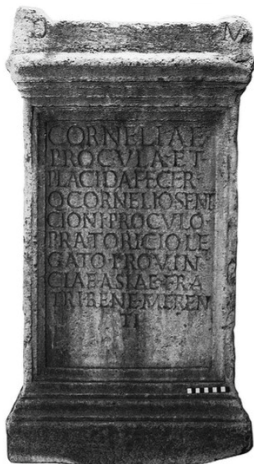 D M
CORNELIAE
PROCVLA·ET
PLACIDAFECER
QCORNELIOSENE
CIONI·PROCVLO·
PRATORICIOLE
GATO·PROVIN
CIAEASIAE·FRA
TRI·BENE·MEREN
TI